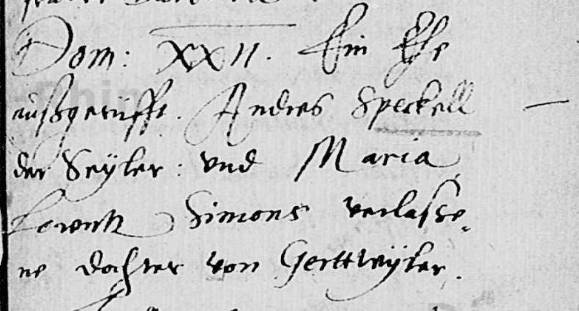 Dom: XXII. Ein Ehe
außgerufft. Andres Speckell
der Seyler: vnd Maria
Lorentz Simons verlaße,
ne dochter von Gerttwyler.